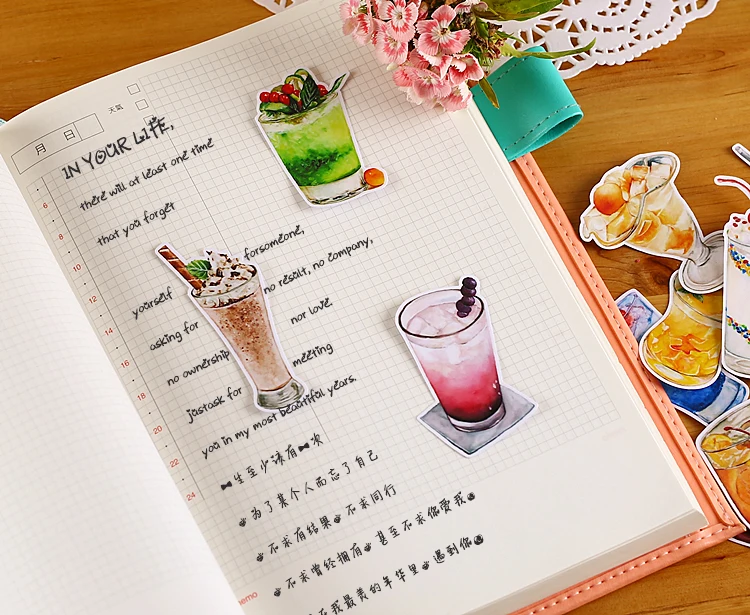 天氣
月 日
IN YOUR LIFE,
there will at least one time
that you forget
yourself forsomeone,
asking for no result, no company,
no ownership nor love.
justask for meeting
you in my most beautiful years.
一生至少该有一次
为了某个人而忘了自己
不求有结果 不求同行
不求曾经拥有 甚至不求你爱我
在我最美的年华里 遇到你
6
8
10
12
14
16
18
20
22
24
memo